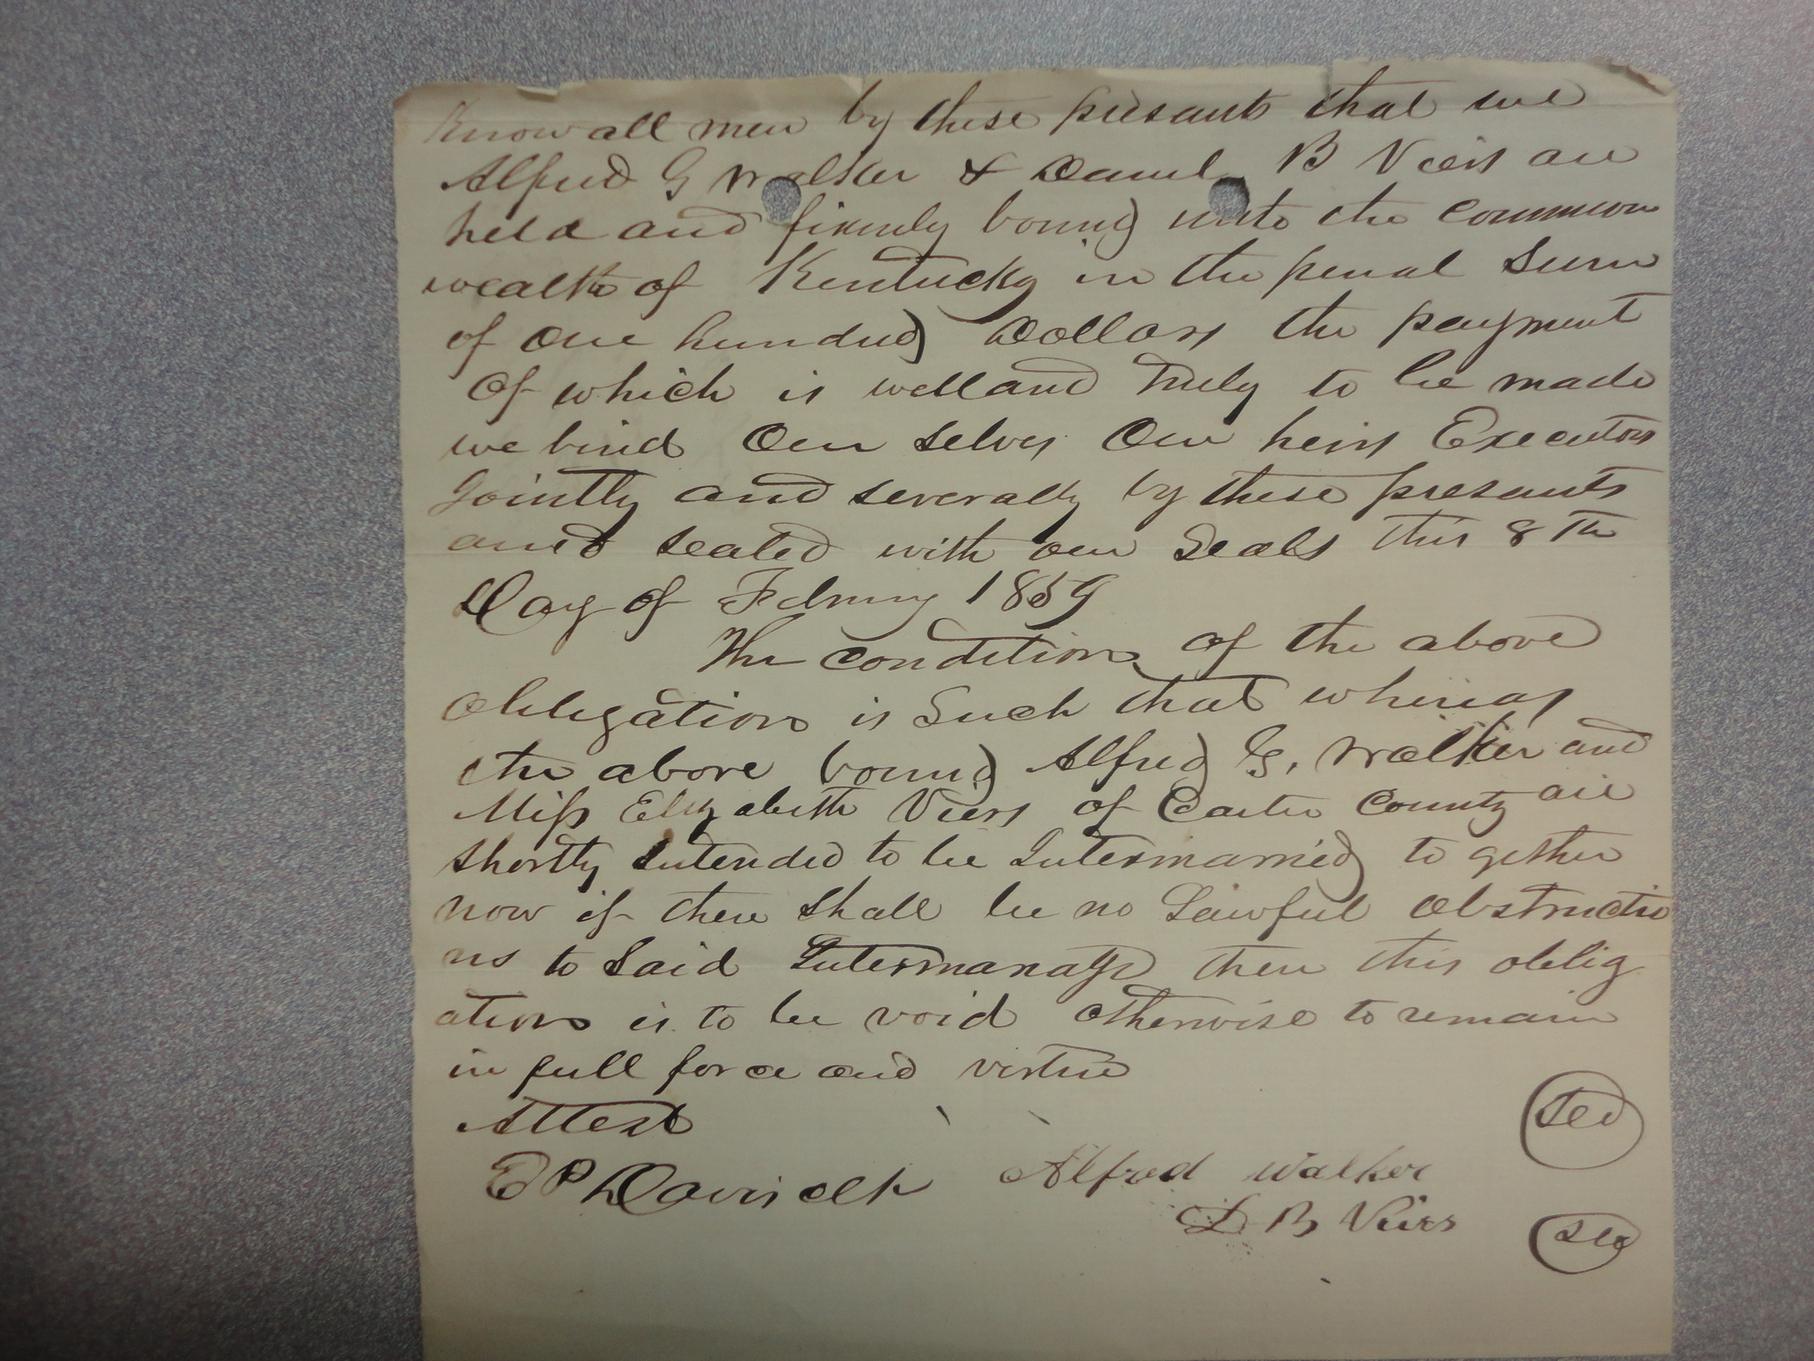 Know all men by these presants that we
Alfred G Walker & Daniel B Veirs are
held and firmly bound unto the common
wealth of Kentucky in the penal Sum
of one hundred Dollars the payment
Of which is well and truly to be made
we bind Our selves Our heirs Executors
Jointly and severally by these presants
and sealed with our Seals this 8th
Day of Febury 1859
The condition of the above
Obligation is Such that whereas
the above bound Alfred G. Walker and
Miss Elizabeth Viers of Carter County are
shortly intended to be Intermarried to gether
now if there shall be no Lawful obstructio
ns to Said Intermarage then this oblig
ation is to be void otherwise to remain
in full force and virtue
Attest
E P Davis clk Alfred Walker
D B Veirs